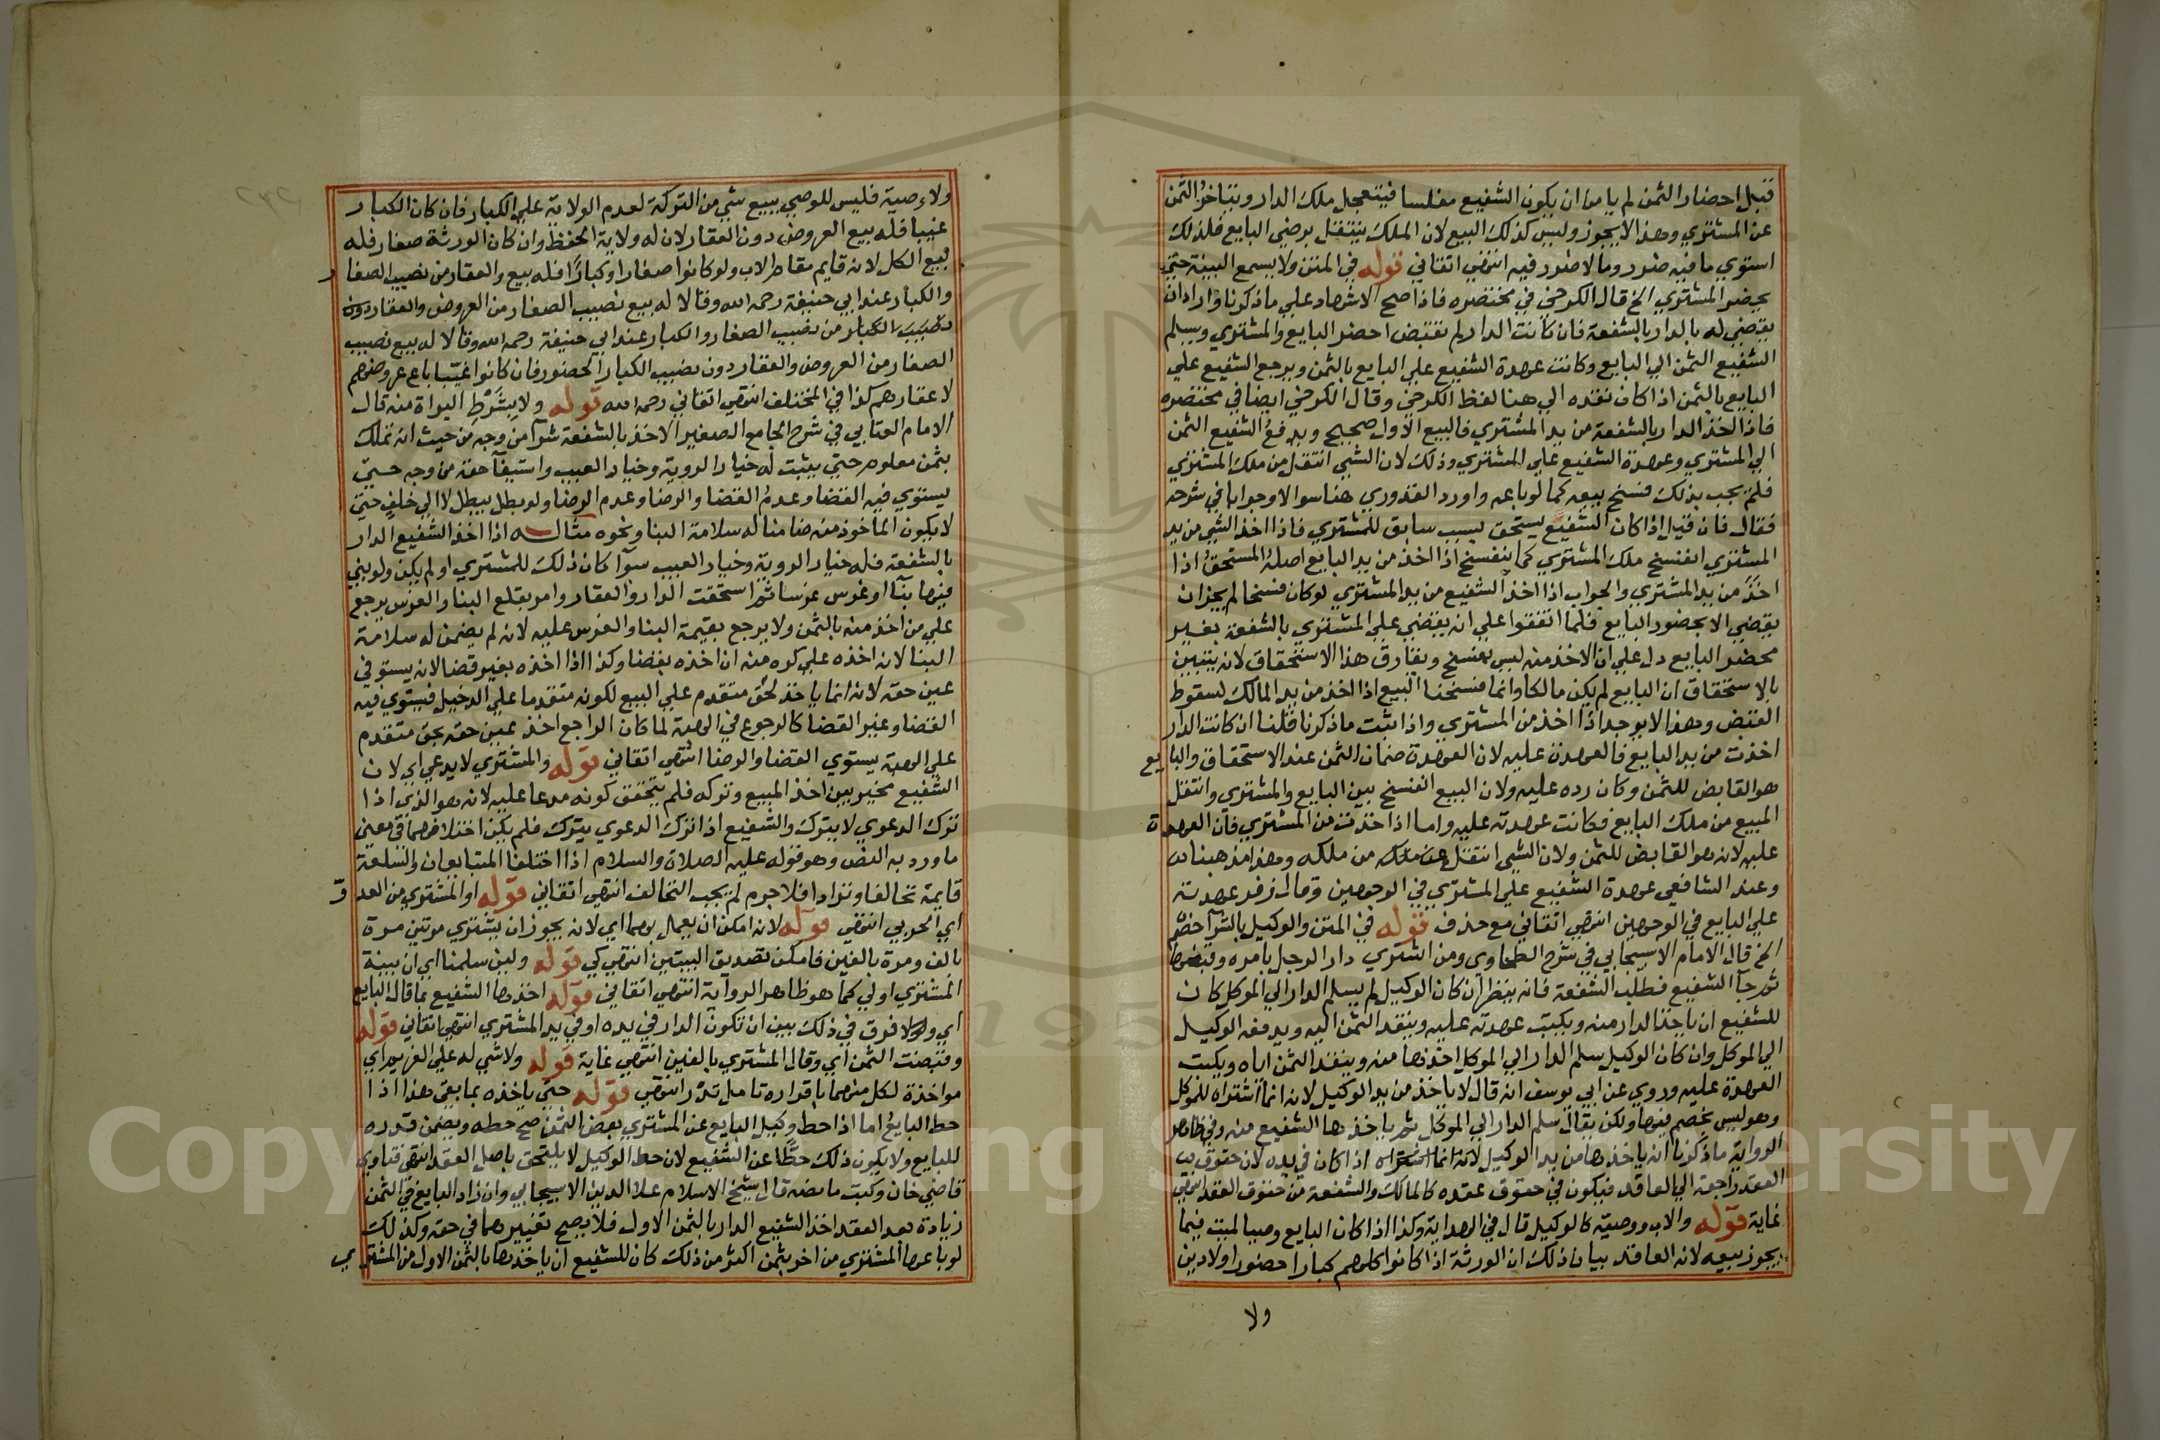 قبل احضار الثمن لم يامن ان يكون الشفيع مفلسا فيتعجل ملك الدار ويتاخر الثمن
عن المشتري وهذا لا يجوز وليس كذلك البيع لان الملك ينتقل برضي البايع فلذلك
استوي ما فيه ضرر وما لا ضرر فيه انتهى اتقاني قوله في المتن ولا يسمع البينة حتي
يحضر المشتري الخ قال الكرخي في مختصره فاذا صح الاشهاد علي ما ذكرنا واراد ان
يقضي له بالدار بالشفعة فان كانت الدار لم تقبض احضر البايع والمشتري ويسلم
الشفيع الثمن الي البايع وكانت عهدة الشفيع علي البايع بالثمن ويرجع الشفيع علي
البايع بالثمن اذا كان نقده الي هنا لفظ الكرخي وقال الكرخي ايضا في مختصره
فاذا اخذ الدار بالشفعة من يد المشتري فالبيع الاول صحيح ويدفع الشفيع الثمن
الي المشتري وعهدة الشفيع علي المشتري وذلك لان الشي انتقل من ملك المشتري
فلم يجب بذلك فسخ بيعه كما لو باعه واورد القدوري هنا سوالا وجوابا في شرحه
فقال فان قيل اذا كان الشفيع يستحق بسبب سابق للمشتري فاذا اخذ الشي من يد
المشتري انفسخ ملك المشتري كما ينفسخ اذا اخذ من يد البايع اصله المستحق اذا
اخذ من يد المشتري والجواب اذا اخذ الشفيع من يد المشتري لو كان فسخا لم يجز ان
يقضي الا بحضور البايع فلما اتفقوا علي انه يقضي علي المشتري بالشفعة بغير
محضر البايع دل علي ان الاخذ منه ليس بفسخ ويفارق هذا الاستحقاق لانه يتبين
بالاستحقاق ان البايع لم يكن مالكا وانما فسخنا البيع اذا اخذ من يد المالك لسقوط
القبض وهذا لا يوجد اذا اخذ من المشتري واذا ثبت ما ذكرنا قلنا ان كانت الدار
اخذت من يد البايع فالعهدة عليه لان العهدة ضمان الثمن عند الاستحقاق والبايع
هو القابض للثمن وكان رده عليه ولان البيع انفسخ بين البايع والمشتري وانتقل
المبيع من ملك البايع فكانت عهدته عليه واما اذا اخذت من المشتري فان العهدة
عليه لانه هو القابض للثمن ولان الشي انتقل من ملكه وهذا مذهبنا
وعند الشافعي عهدة الشفيع علي المشتري في الوجهين وقال زفر عهدته
علي البايع في الوجهين انتهى اتقاني مع حذف قوله في المتن والوكيل بالشرآ خصم
الخ قال الامام الاسبيجابي في شرح الطحاوي ومن اشتري دار الرجل بامره وقبضها
ثم جآ الشفيع فطلب الشفعة فانه ينظر ان كان الوكيل لم يسلم الدار الي الموكل كان
للشفيع ان ياخذ الدار منه ويكتب عهدته عليه وينقد الثمن اليه ويدفعه الوكيل
الي الموكل وان كان الوكيل سلم الدار الي الموكل اخذها منه وينقد الثمن اياه ويكتب
العهدة عليه وروي عن ابي يوسف انه قال لا ياخذ من يد الوكيل لانه انما اشتراه للموكل
وهو ليس بخصم فيها ولكن يقال سلم الدار الي الموكل ثم ياخذها الشفيع منه وفي ظاهر
الرواية ما ذكرنا انه ياخذها من يد الوكيل اذا كان في يده لان حقوق
العقد راجعة الي العاقد فيكون في حقوق عقده كالمالك والشفعة من حقوق العقد انتهى
غاية قوله والاب ووصيه كالوكيل قال في الهداية وكذا اذا كان البايع وصيا لميت فيما
يجوز بيعه لانه العاقد بيان ذلك ان الورثة اذا كانوا كلهم كبارا حضورا ولا دين
ولا
ولا وصية فليس للوصي بيع شي من التركة لعدم الولاية علي الكبار فان كان الكبار
غيبا فله بيع العروض دون العقار لان له ولاية الحفظ وان كان الورثة صغار فله
بيع الكل لانه قايم مقام الاب ولو كانوا صغارا وكبارا فله بيع والعقار من نصيب الصغار
والكبار عند ابي حنيفة رحمه الله وقالا له بيع نصيب الصغار من العروض والعقار دون
نصيب الكبار من نصيب الصغار والكبار عند ابي حنيفة رحمه الله وقالا له بيع نصيب
الصغار من العروض والعقار دون نصيب الكبار الحضور فان كانوا غيبا باع عروضهم
لا عقارهم كذا في المختلف انتهى اتقاني رحمه الله قوله ولا يشترط البراة منه قال
الامام العتابي في شرح الجامع الصغير الاخذ بالشفعة شرآ من وجه من حيث انه تملك
بثمن معلوم حتي يثبت له خيار الروية وخيار العيب واستيفآ حقه من وجه حتي
يستوي فيه القضا وعدم القضا والرضا وعدم الرضا ولو بطل يبطل لا الي خلف حتي
لا يكون الماخوذ منه ضامنا له سلامة البنا ونحوه مثاله اذا اخذ الشفيع الدار
بالشفعة فله خيار الروية وخيار العيب سوآ كان ذلك للمشتري او لم يكن ولو بني
فيها بنآ او غرس غرسا ثم استحقت الدار والعقار وامر بقلع البنا والغرس يرجع
علي من اخذ منه بالثمن ولا يرجع بقيمة البنا والغرس عليه لانه لم يضمن له سلامة
البنا لانه اخذه علي كره منه ان اخذه بقضا وكذا اذا اخذه بغير قضا لانه يستوفي
عين حقه لانه انما ياخذ لحق متقدم علي البيع لكونه متقدما علي الدخيل فيستوي فيه
القضا وغير القضا كالرجوع في الهبة لما كان الراجع اخذ عين حقه بحق متقدم
علي الهبة يستوي القضا والرضا انتهى اتقاني قوله والمشتري لا يدعي اي لان
الشفيع مخير بين اخذ المبيع وتركه فلم يتحقق كونه مدعا عليه لانه هو الذي اذا
ترك الدعوي لا يترك والشفيع اذا ترك الدعوي يترك فلم يكن اختلافهما في معني
ما ورد به النص وهو قوله عليه الصلاة والسلام اذا اختلفا المتبايعان والسلعة
قايمة تحالفا وترادا فلا جرم لم يجب التحالف انتهى اتقاني قوله او المشتري من العدو
اي الحربي انتهى قوله لانه امكن ان يعمل بهما اي لانه يجوز ان يشتري مرتين مرة
بالف ومرة بالفين فامكن تصديق البينتين انتهى كي قوله ولين سلمنا اي ان بينة
المشتري اولي كما هو ظاهر الرواية انتهى اتقاني قوله اخذها الشفيع بما قال البايع
اي ولا فرق في ذلك بين ان تكون الدار في يده او في يد المشتري انتهى اتقاني قوله
وقبضت الثمن اي وقال المشتري بالفين انتهى غاية قوله ولا شي له علي الغريم اي
مواخذة لكل منهما باقراره تامل تدر انتهى قوله حتي ياخذه بما بقي هذا اذا
حط البايع اما اذا حط وكيل البايع عن المشتري بعض الثمن صح حطه ويضمن قدره
للبايع ولا يكون ذلك حطا عن الشفيع لان حط الوكيل لا يلتحق باصل العقد انتهى فتاوي
قاضي خان وكتب ما نصه قال شيخ الاسلام علا الدين الاسبيجابي وان زاد البايع في الثمن
زيادة بعد العقد اخذ الشفيع الدار بالثمن الاول فلا يصح تغييرهما في حقه وكذلك
لو باعها المشتري من اخر بثمن اكثر من ذلك كان للشفيع ان ياخذها بالثمن الاول من المشتري
Copy ng S ersity
195